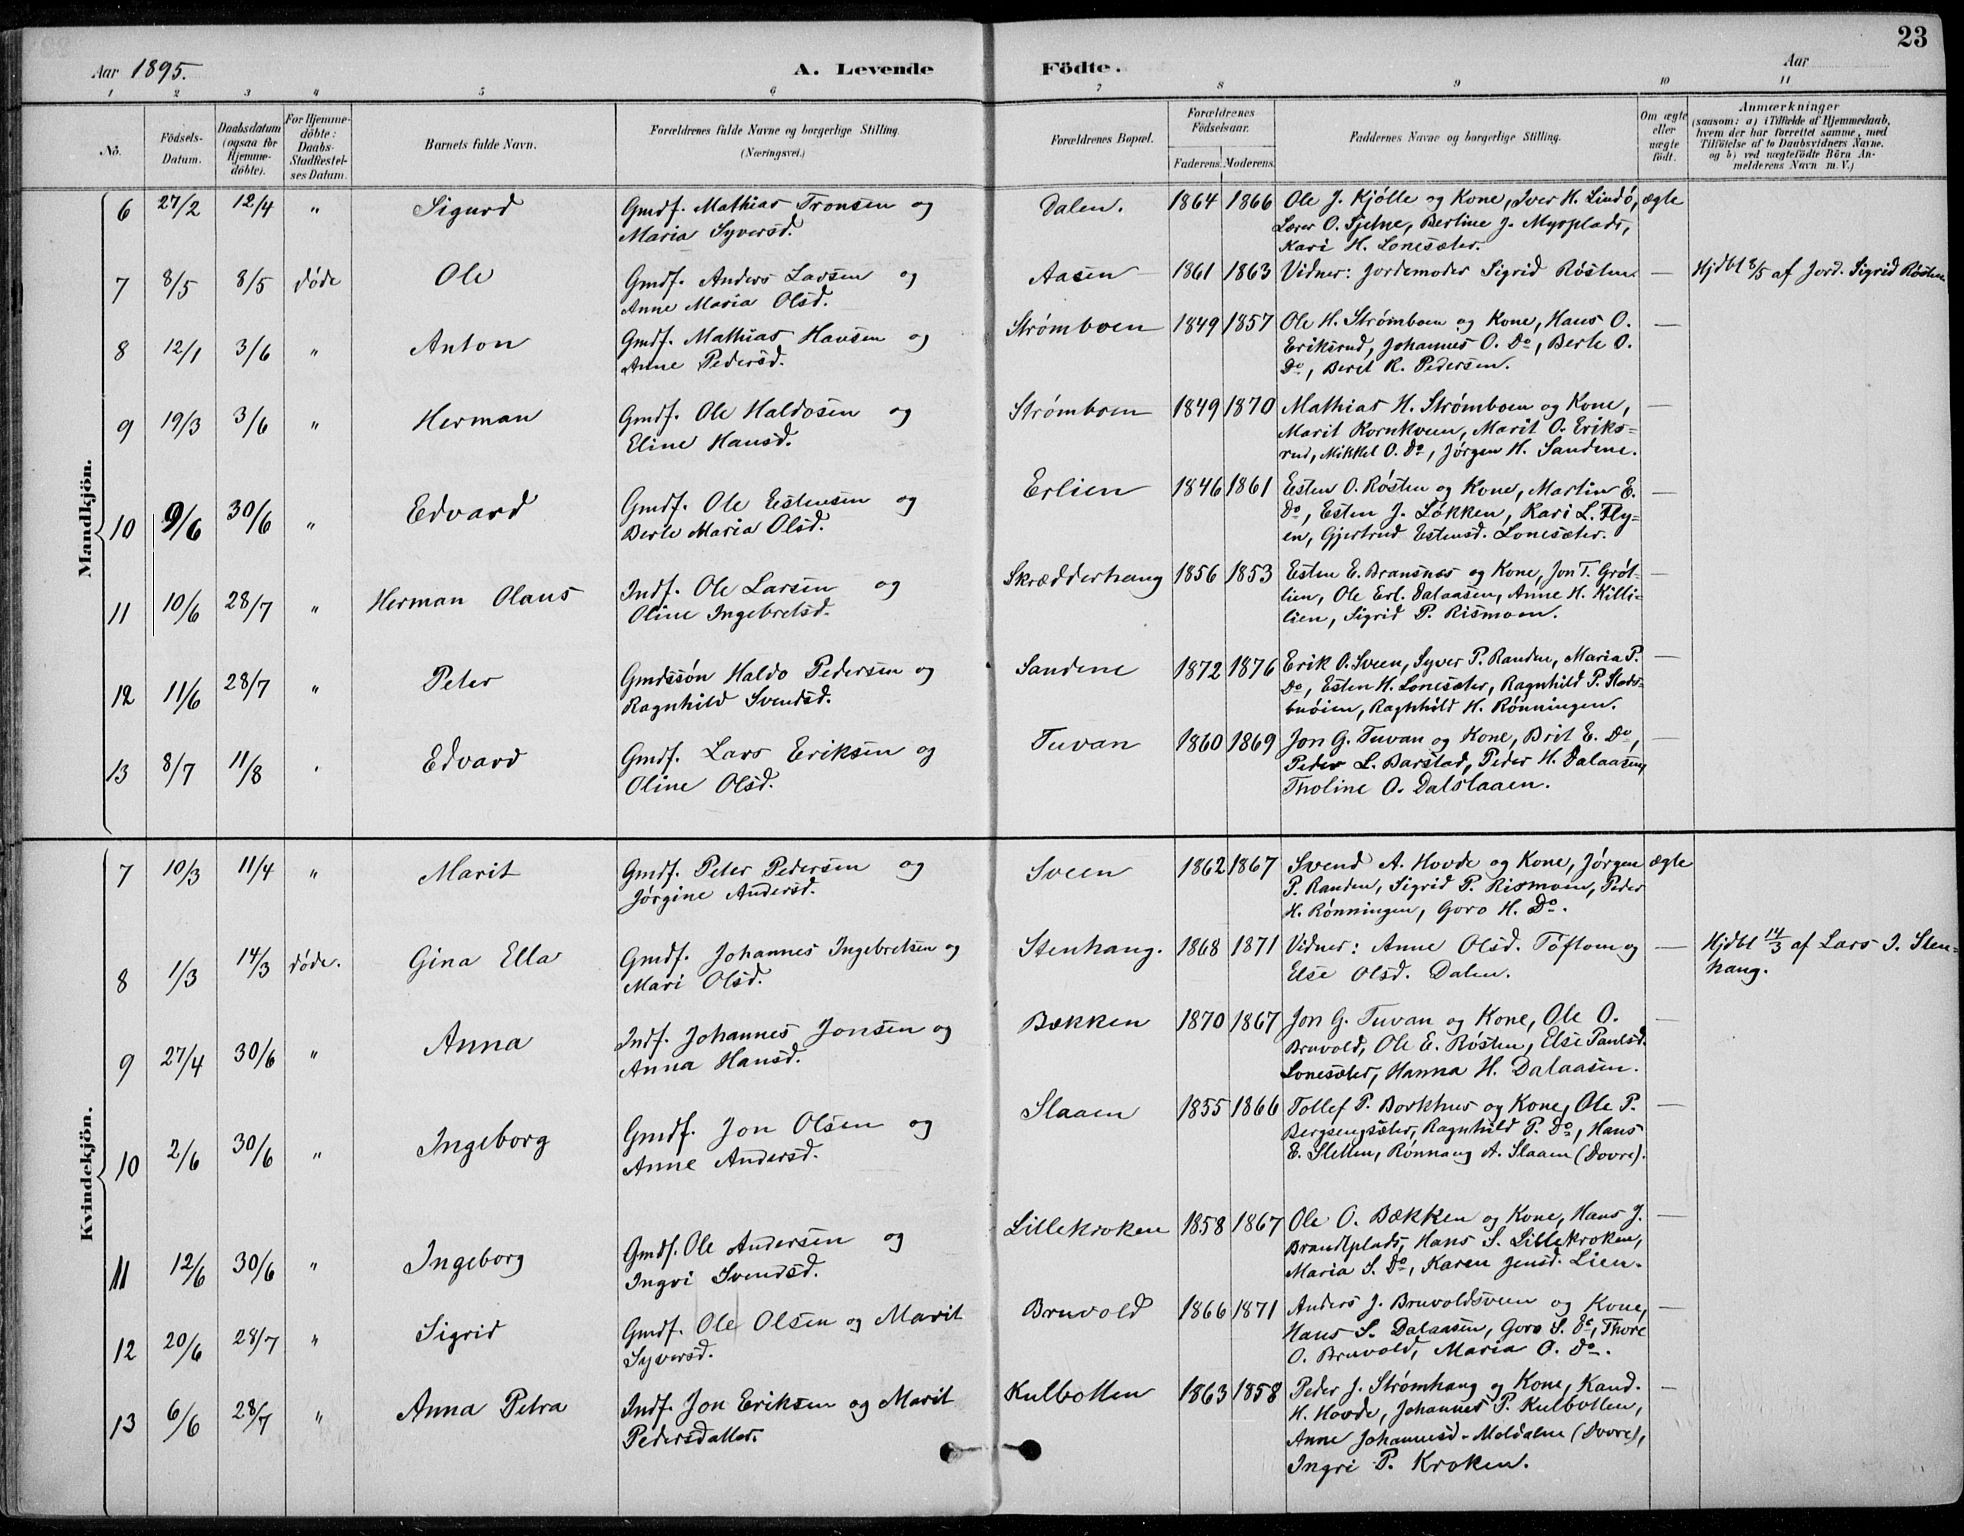 23
Aar 1895.
A. Levende Födte.
Aar
1 2 3 4 5 6 7 8 9 10 11
No.
Födsels-Datum.
Daabsdatum (ogsaa for Hjemmedöbte).
For Hjemmedöbte: Daabs-Stadfæstelses Datum.
Barnets fulde Navn.
Forældrenes fulde Navne og borgerlige Stilling. (Næringsvei.)
Forældrenes Bopæl.
Forældrenes Födselsaar.
Faderens. Moderens.
Faddernes Navne og borgerlige Stilling.
Om ægte eller uægte födt.
Anmærkninger
(saasom: a) i Tilfælde af Hjemmedaab, hvem der har forrettet samme, med Tilföielse af to Daabsvidners Navne, og b) ved uægtefödte Börn Anmelderens Navn m.V.)
Mandkjön.
6 27/2 12/4 " Sigurd Gmdf. Mathias Tronsen og Dalen. 1864 1866 Ole J. Kjølle og Kone, Iver H. Lindö, ægte
Maria Syversd. Lærer O. Sjelne, Berline J. Myrplads,
Kari H. Lonesæter.
7 8/5 8/5 døde Ole Gmdf. Anders Larsen og Aasen 1861 1863 Vidner: Jordemoder Sigrid Røsten. — Hjdbt 8/5 af Jord. Sigrid Røsten
Anne Maria Olsd.
8 12/1 3/6 " Anton Gmdf. Mathias Hansen og Strømboen 1849 1857 Ole H. Strømboen og Kone, Hans O. —
Anne Pedersd. Eriksrud, Johannes O. Do, Berte O.
Do, Berit R. Pedersen.
9 19/3 3/6 " Herman Gmdf. Ole Haldosen og Strømboen 1849 1870 Mathias H. Strømboen og Kone, —
Eline Hansd. Marit Kornkveen, Marit O. Eriks-
rud, Mikkel O. Do, Jørgen H. Sandene.
10 9/6 30/6 " Edvard Gmdf. Ole Estensen og Erlien 1846 1861 Esten O. Røsten og Kone, Martin E. —
Berte Maria Olsd. Do, Esten J. Løkken, Kari L. Fly-
en, Gjertrud Estensd. Lonesæter.
11 10/6 28/7 " Herman Olaus Indf. Ole Larsen og Skrædderhaug 1856 1853 Esten E. Bransnæs og Kone, Jon T. Grøt- —
Oline Ingebretsd. lien, Ole Erl. Dalaasen, Anne H. Killi-
lien, Sigrid P. Rismoen.
12 11/6 28/7 " Peter Gmdssøn Haldo Pedersen og Sandene 1872 1876 Erik O. Sveen, Syver P. Randen, Maria P. —
Ragnhild Svendsd. Do, Esten H. Lonesæter, Ragnhild P. Stads-
buøien, Ragnhild H. Rønningen.
13 8/7 11/8 . Edvard Gmdf. Lars Eriksen og Tuvan 1860 1869 Jon G. Tuvan og Kone, Brit E. Do, —
Oline Olsd. Peder L. Barstad, Peder H. Dalaasen,
Tholine O. Dalslaaen.
Kvindekjön.
7 10/3 11/4 " Marit Gmdf. Peter Pedersen og Sveen 1862 1867 Svend A. Hovde og Kone, Jørgen ægte
Jørgine Andersd. P. Randen, Sigrid P. Rismoen, Peder
H. Rønningen, Goro H. Do.
8 1/3 14/3 døde. Gina Ella Gmdf. Johannes Ingebretsen og Stenhaug. 1868 1871 Vidner: Anne Olsd. Toftom og — Hjdbt 14/3 af Lars J. Sten-
Mari Olsd. Else Olsd. Dalen. haug.
9 27/4 30/6 " Anna Indf. Johannes Jonsen og Bækken 1870 1867 Jon G. Tuvan og Kone, Ole O. —
Anna Hansd. Bruvold, Ole E. Røsten, Else Paulsd.
Lonesæter, Hanna H. Dalaasen.
10 2/6 30/6 " Ingeborg Gmdf. Jon Olsen og Slaaen 1855 1866 Tollef P. Borkhus og Kone, Ole P. —
Anne Andersd. Bergsengsæter, Ragnhild P. Do, Hans
E. Sletten, Rønnaug A. Slaaen (Dovre).
11 12/6 30/6 " Ingeborg Gmdf. Ole Andersen og Lillekroken 1858 1867 Ole O. Bækken og Kone, Hans J. —
Ingri Svendsd. Brandtplads, Hans S. Lillekroken,
Maria S. Do, Karen Jensd. Lien.
12 20/6 28/7 " Sigrid Gmdf. Ole Olsen og Marit Bruvold 1866 1871 Anders J. Bruvoldsveen og Kone, —
Syversd. Hans S. Dalaasen, Goro S. Do, Thore
O. Bruvold, Maria O. Do.
13 6/6 28/7 " Anna Petra Indf. Jon Eriksen og Marit Kulbotten 1863 1858 Peder J. Strømhaug og Kone, Kand. —
Pedersdatter. H. Hovde, Johannes P. Kulbotten,
Anne Johannesd. Moldalen (Dovre),
Ingri P. Kroken.